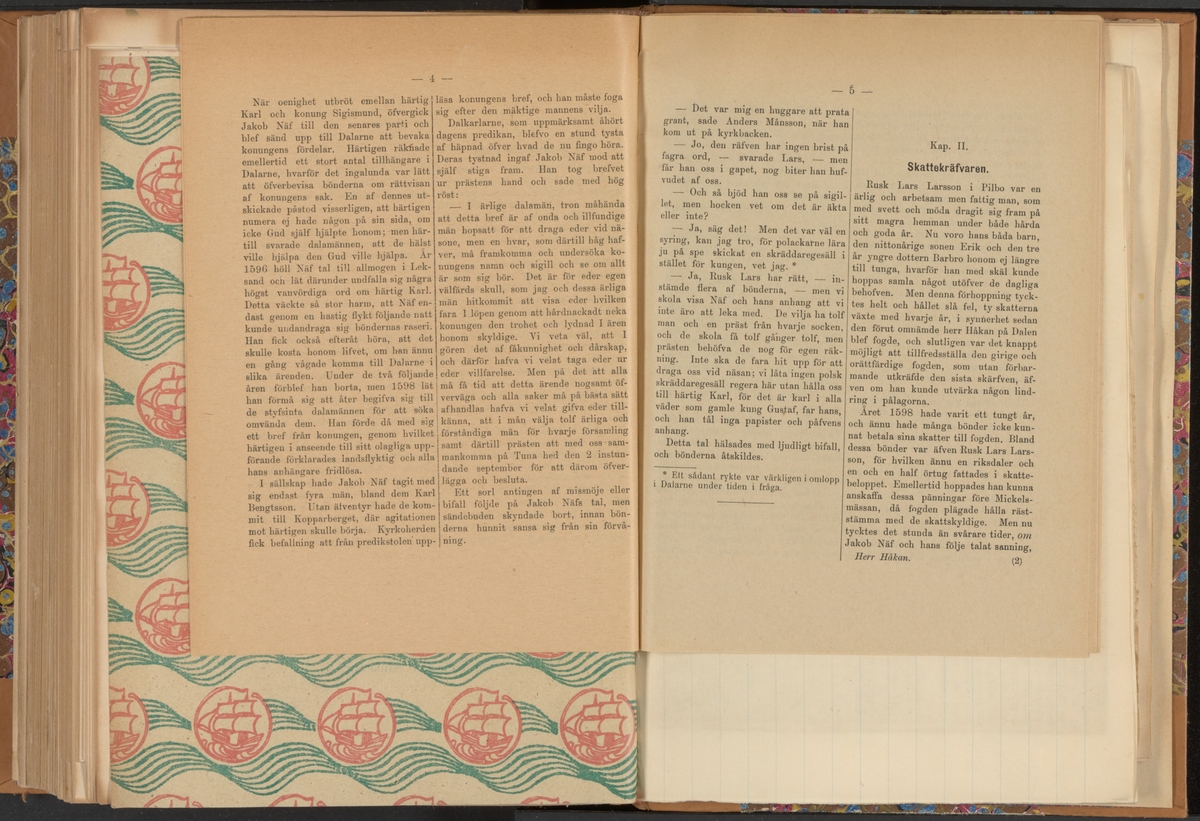 — 4 —
När oenighet utbröt emellan härtig
Karl och konung Sigismund, öfvergick
Jakob Näf till den senares parti och
blef sänd upp till Dalarne att bevaka
konungens fördelar. Härtigen räknade
emellertid ett stort antal tillhängare i
Dalarne, hvarför det ingalunda var lätt
att öfverbevisa bönderna om rättvisan
af konungens sak. En af dennes ut-
skickade påstod visserligen, att härtigen
numera ej hade någon på sin sida, om
icke Gud själf hjälpte honom; men här-
till svarade dalamännen, att de hälst
ville hjälpa den Gud ville hjälpa. År
1596 höll Näf tal till allmogen i Lek-
sand och lät därunder undfalla sig några
högst vanvördiga ord om härtig Karl.
Detta väckte så stor harm, att Näf en-
dast genom en hastig flykt följande natt
kunde undandraga sig böndernas raseri.
Han fick också efteråt höra, att det
skulle kosta honom lifvet, om han ännu
en gång vågade komma till Dalarne i
slika ärenden. Under de två följande
åren förblef han borta, men 1598 lät
han förmå sig att åter begifva sig till
de styfsinta dalamännen för att söka
omvända dem. Han förde då med sig
ett bref från konungen, genom hvilket
härtigen i anseende till sitt olagliga upp-
förande förklarades landsflyktig och alla
hans anhängare fridlösa.
I sällskap hade Jakob Näf tagit med
sig endast fyra män, bland dem Karl
Bengtsson. Utan äfventyr hade de kom-
mit till Kopparberget, där agitationen
mot härtigen skulle börja. Kyrkoherden
fick befallning att från predikstolen upp-
läsa konungens bref, och han måste foga
sig efter den mäktige mannens vilja.
Dalkarlarne, som uppmärksamt åhört
dagens predikan, blefvo en stund tysta
af häpnad öfver hvad de nu fingo höra.
Deras tystnad ingaf Jakob Näf mod att
själf stiga fram. Han tog brefvet
ur prästens hand och sade med hög
röst:
— I ärlige dalamän, tron måhända
att detta bref är af onda och illfundige
män hopsatt för att draga eder vid nä-
sone, men en hvar, som därtill håg haf-
ver, må framkomma och undersöka ko-
nungens namn och sigill och se om allt
är som sig bör. Det är för eder egen
välfärds skull, som jag och dessa ärliga
män hitkommit att visa eder hvilken
fara I löpen genom att hårdnackadt neka
konungen den trohet och lydnad I ären
honom skyldige. Vi veta väl, att I
gören det af fåkunnighet och dårskap,
och därför hafva vi velat taga eder ur
eder villfarelse. Men på det att alla
må få tid att detta ärende nogsamt öf-
verväga och alla saker må på bästa sätt
afhandlas hafva vi velat gifva eder till-
känna, att i mån välja tolf ärliga och
förståndiga män för hvarje församling
samt därtill prästen att med oss sam-
mankomma på Tuna hed den 2 instun-
dande september för att därom öfver-
lägga och besluta.
Ett sorl antingen af missnöje eller
bifall följde på Jakob Näfs tal, men
sändebuden skyndade bort, innan bön-
derna hunnit sansa sig från sin förvå-
ning.
— 5 —
— Det var mig en huggare att prata
grant, sade Anders Månsson, när han
kom ut på kyrkbacken.
— Jo, den räfven har ingen brist på
fagra ord, — svarade Lars, — men
får han oss i gapet, nog biter han huf-
vudet af oss.
— Och så bjöd han oss se på sigil-
let, men hocken vet om det är äkta
eller inte?
— Ja, säg det! Men det var väl en
syring, kan jag tro, för polackarne lära
ju på spe skickat en skräddaregesäll i
stället för kungen, vet jag. *
— Ja, Rusk Lars har rätt, — in-
stämde flera af bönderna, — men vi
skola visa Näf och hans anhang att vi
inte äro att leka med. De vilja ha tolf
man och en präst från hvarje socken,
och de skola få tolf gånger tolf, men
prästen behöfva de nog för egen räk-
ning. Inte ska de fara hit upp för att
draga oss vid näsan; vi låta ingen polsk
skräddaregesäll regera här utan hålla oss
till härtig Karl, för det är karl i alla
väder som gamle kung Gustaf, far hans,
och han tål inga papister och påfvens
anhang.
Detta tal hälsades med ljudligt bifall,
och bönderna åtskildes.
* Ett sådant rykte var värkligen i omlopp
i Dalarne under tiden i fråga.
Kap. II.
Skattekräfvaren.
Rusk Lars Larsson i Pilbo var en
ärlig och arbetsam men fattig man, som
med svett och möda dragit sig fram på
sitt magra hemman under både hårda
och goda år. Nu voro hans båda barn,
den nittonårige sonen Erik och den tre
år yngre dottern Barbro honom ej längre
till tunga, hvarför han med skäl kunde
hoppas samla något utöfver de dagliga
behofven. Men denna förhoppning tyck-
tes helt och hållet slå fel, ty skatterna
växte med hvarje år, i synnerhet sedan
den förut omnämde herr Håkan på Dalen
blef fogde, och slutligen var det knappt
möjligt att tillfredsställa den girige och
orättfärdige fogden, som utan förbar-
mande utkräfde den sista skärfven, äf-
ven om han kunde utvärka någon lind-
ring i pålagorna.
Året 1598 hade varit ett tungt år,
och ännu hade många bönder icke kun-
nat betala sina skatter till fogden. Bland
dessa bönder var äfven Rusk Lars Lars-
son, för hvilken ännu en riksdaler och
en och en half örtug fattades i skatte-
beloppet. Emellertid hoppades han kunna
anskaffa dessa pänningar före Mickels-
mässan, då fogden plägade hålla räst-
stämma med de skattskyldige. Men nu
tycktes det stunda än svårare tider, om
Jakob Näf och hans följe talat sanning,
Herr Håkan. (2)